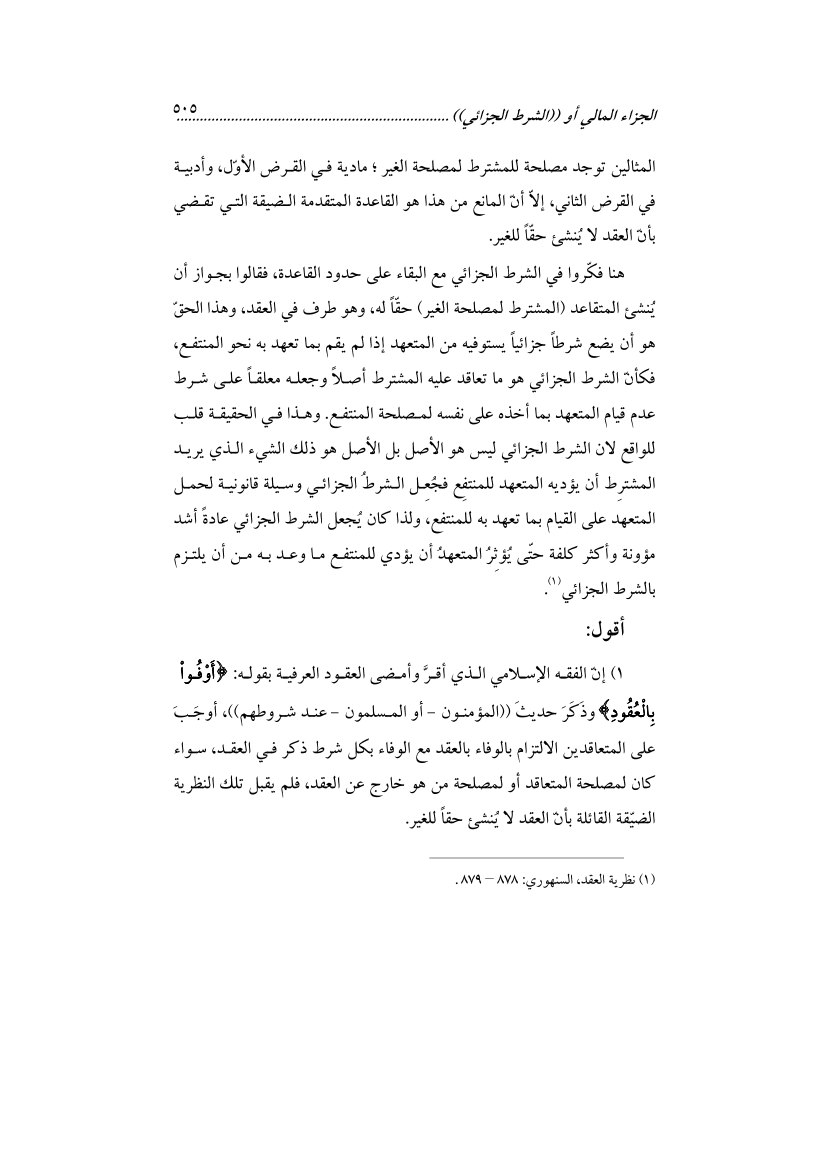 الجزاء المالي أو ((الشرط الجزائي)) ...................................................................... ٥٠٥
المثالين توجد مصلحة للمشترط لمصلحة الغير ؛ مادية في القرض الأوّل، وأدبية
في القرض الثاني، إلاّ أنّ المانع من هذا هو القاعدة المتقدمة الضيقة التي تقضي
بأنّ العقد لا يُنشئ حقّاً للغير.
هنا فكّروا في الشرط الجزائي مع البقاء على حدود القاعدة، فقالوا بجواز أن
يُنشئ المتقاعد (المشترط لمصلحة الغير) حقّاً له، وهو طرف في العقد، وهذا الحقّ
هو أن يضع شرطاً جزائياً يستوفيه من المتعهد إذا لم يقم بما تعهد به نحو المنتفع،
فكأنّ الشرط الجزائي هو ما تعاقد عليه المشترط أصلاً وجعله معلقاً على شرط
عدم قيام المتعهد بما أخذه على نفسه لمصلحة المنتفع. وهذا في الحقيقة قلب
للواقع لان الشرط الجزائي ليس هو الأصل بل الأصل هو ذلك الشيء الذي يريد
المشترِط أن يؤديه المتعهد للمنتفِع فجُعِل الشرطُ الجزائي وسيلة قانونية لحمل
المتعهد على القيام بما تعهد به للمنتفع، ولذا كان يُجعل الشرط الجزائي عادةً أشد
مؤونة وأكثر كلفة حتّى يُؤثِرُ المتعهدُ أن يؤدي للمنتفع ما وعد به من أن يلتزم
بالشرط الجزائي(١).
أقول:
١) إنّ الفقه الإسلامي الذي أقرَّ وأمضى العقود العرفية بقوله: ﴿أَوْفُواْ
بِالْعُقُودِ﴾ وذَكَرَ حديثَ ((المؤمنون - أو المسلمون - عند شروطهم))، أوجَبَ
على المتعاقدين الالتزام بالوفاء بالعقد مع الوفاء بكل شرط ذكر في العقد، سواء
كان لمصلحة المتعاقد أو لمصلحة من هو خارج عن العقد، فلم يقبل تلك النظرية
الضيّقة القائلة بأنّ العقد لا يُنشئ حقاً للغير.
(١) نظرية العقد، السنهوري: ٨٧٨ – ٨٧٩ .